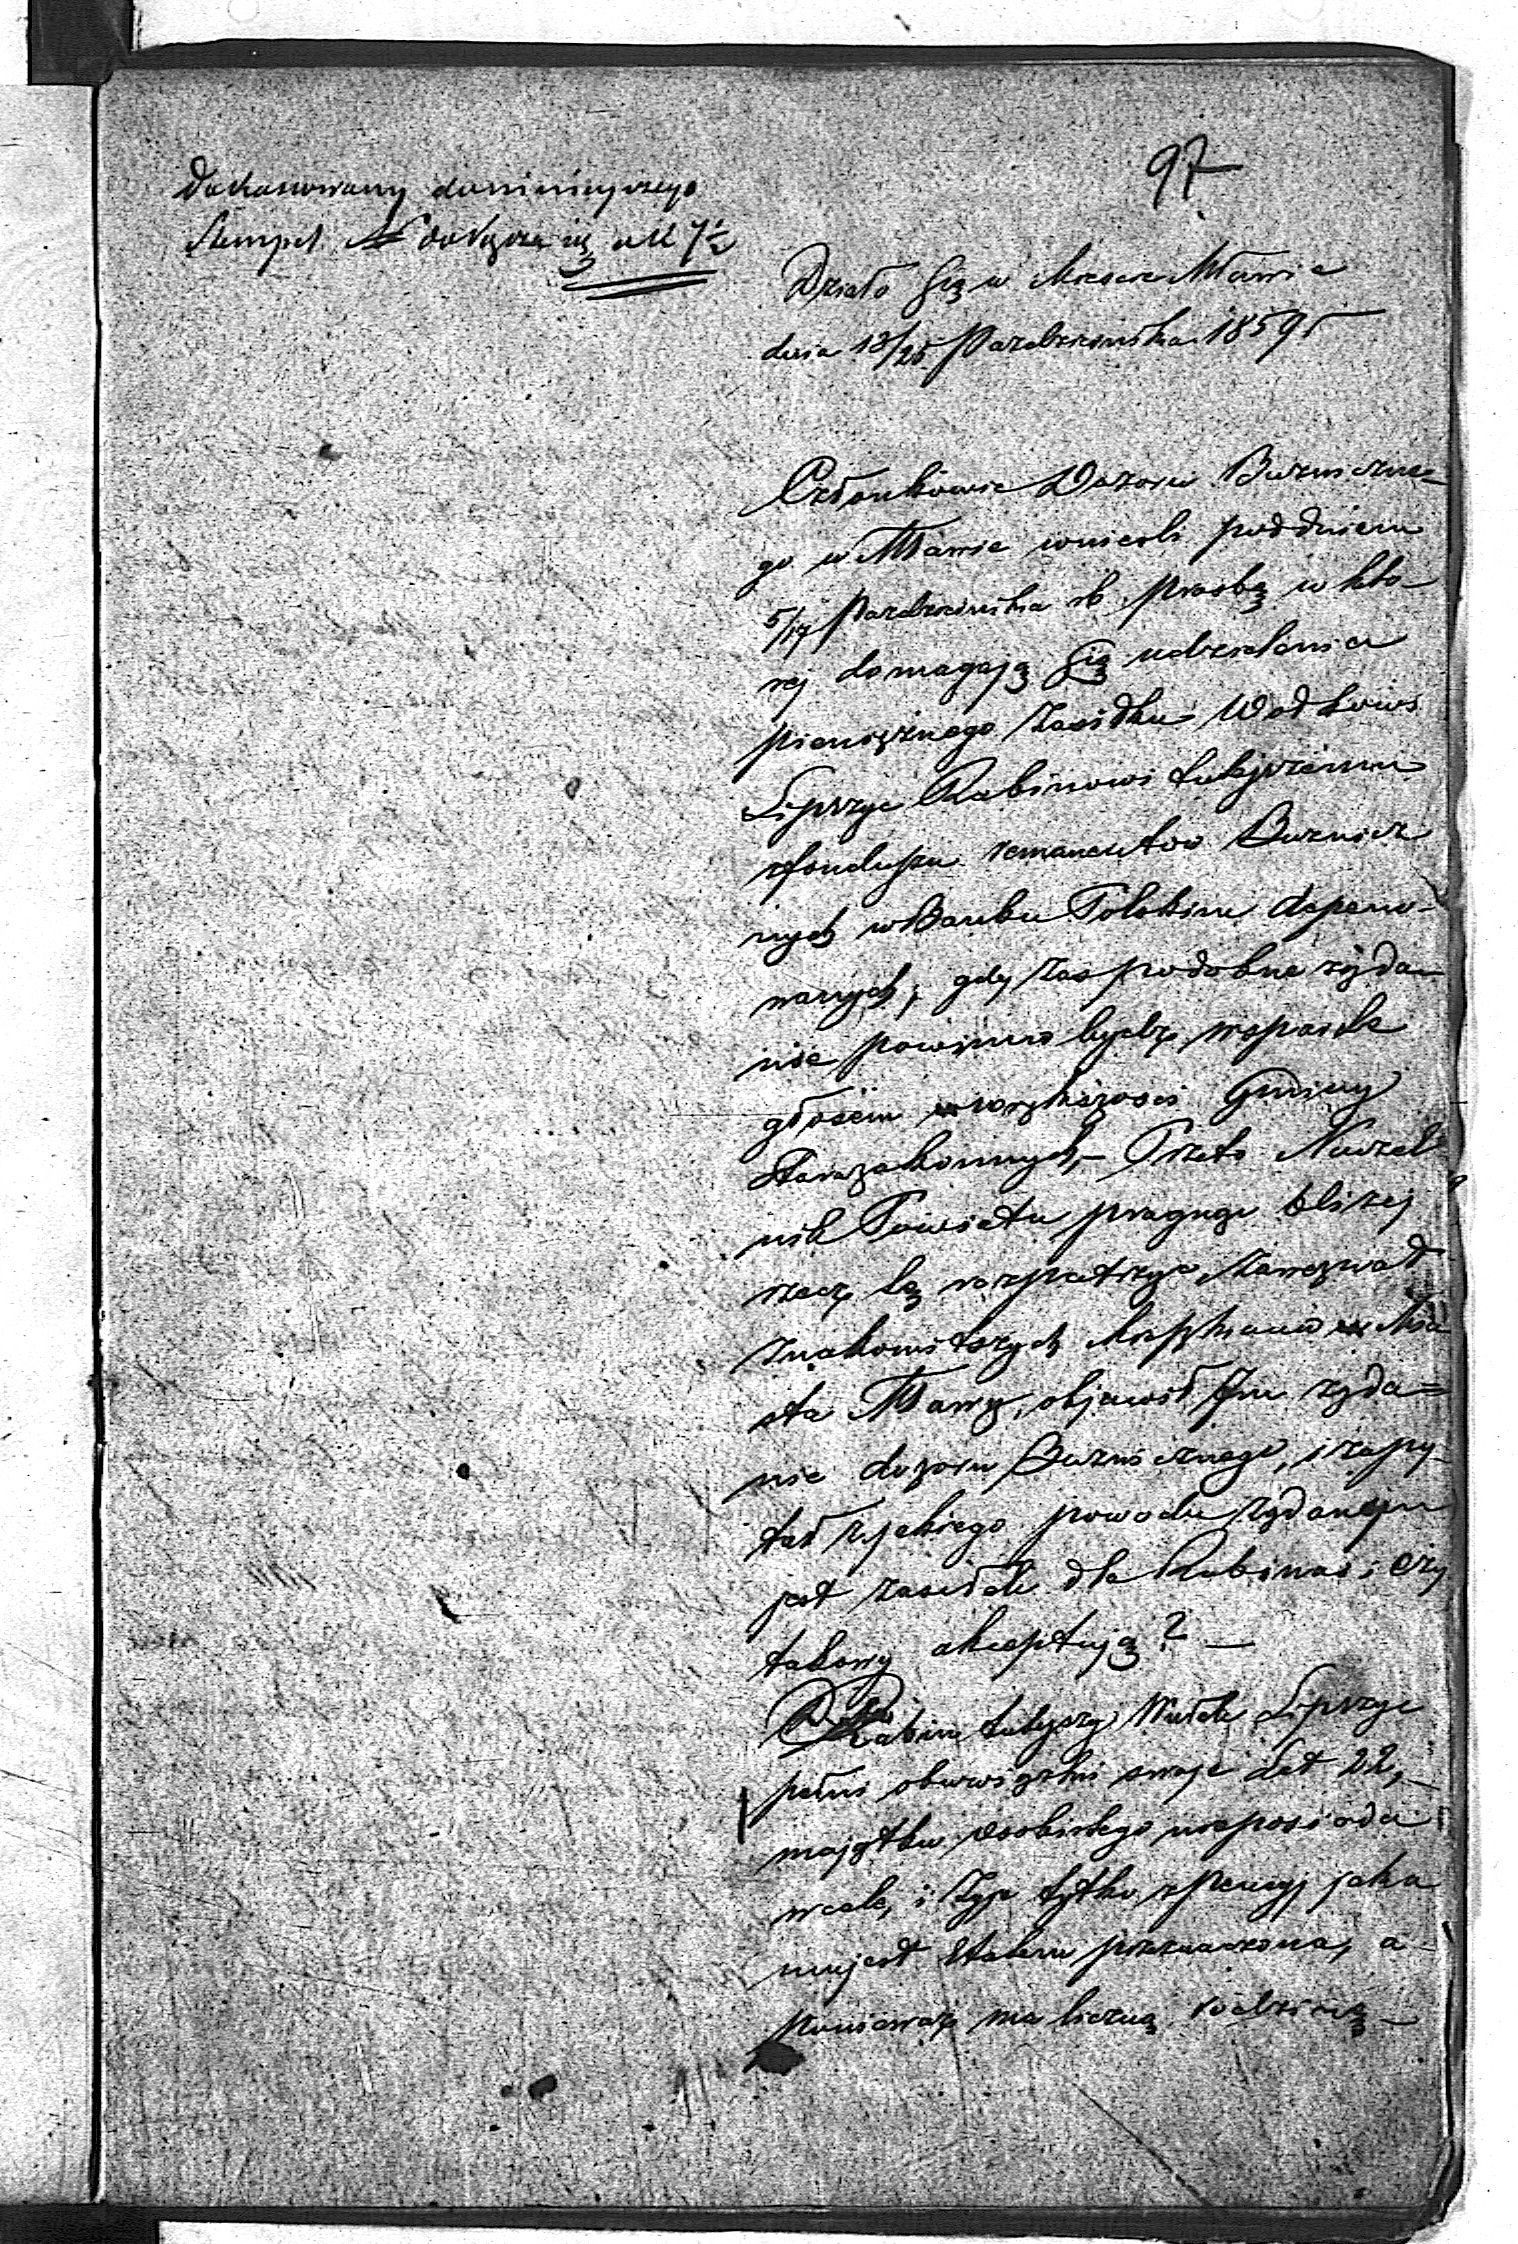 97
Skasowany do niniejszego
Stempel dołącza się a 7½
Działo Się w Mieście Mławie
dnia 13/25 Pazdziernika 1859 r
Członkowie Dozoru Buzniczne-
go w Mławie wnieśli pod dniem
5/17 Pazdziernika rb prosbę w któ-
rej domagają Się udzielenia
pieniężnego Zasiłku Wolkowi
Lipszyc Rabinowi tutejszemu
z funduszu remanentów Buznicz
nych w Banku Polskim depono-
wanych; gdy zaś podobne żąda-
nie powinno bydź wsparte
głosem większości Gminy
Starozakonnych, – Przeto Naczel
nik Powiatu pragnąc bliżej
rzecz tą rozpatrzyć Zawezwał
znakomitszych Mieszkańców Mia
sta Mławy, objawił Im żąda=
nie dozoru Buzniczego, i zapy-
tał z jakiego powodu żądanym
jest zasiłek dla Rabina i czy
takowy akceptują? –
Rabin tutejszy Wolek Lipszyc
pełni obowiązki swoje lat 22, –
majątku osobistego nieposiada
wcale, i żyje tylko z pensyj jaka
mu jest Etatem przeznaczona, a –
ponieważ ma liczną rodzinę –